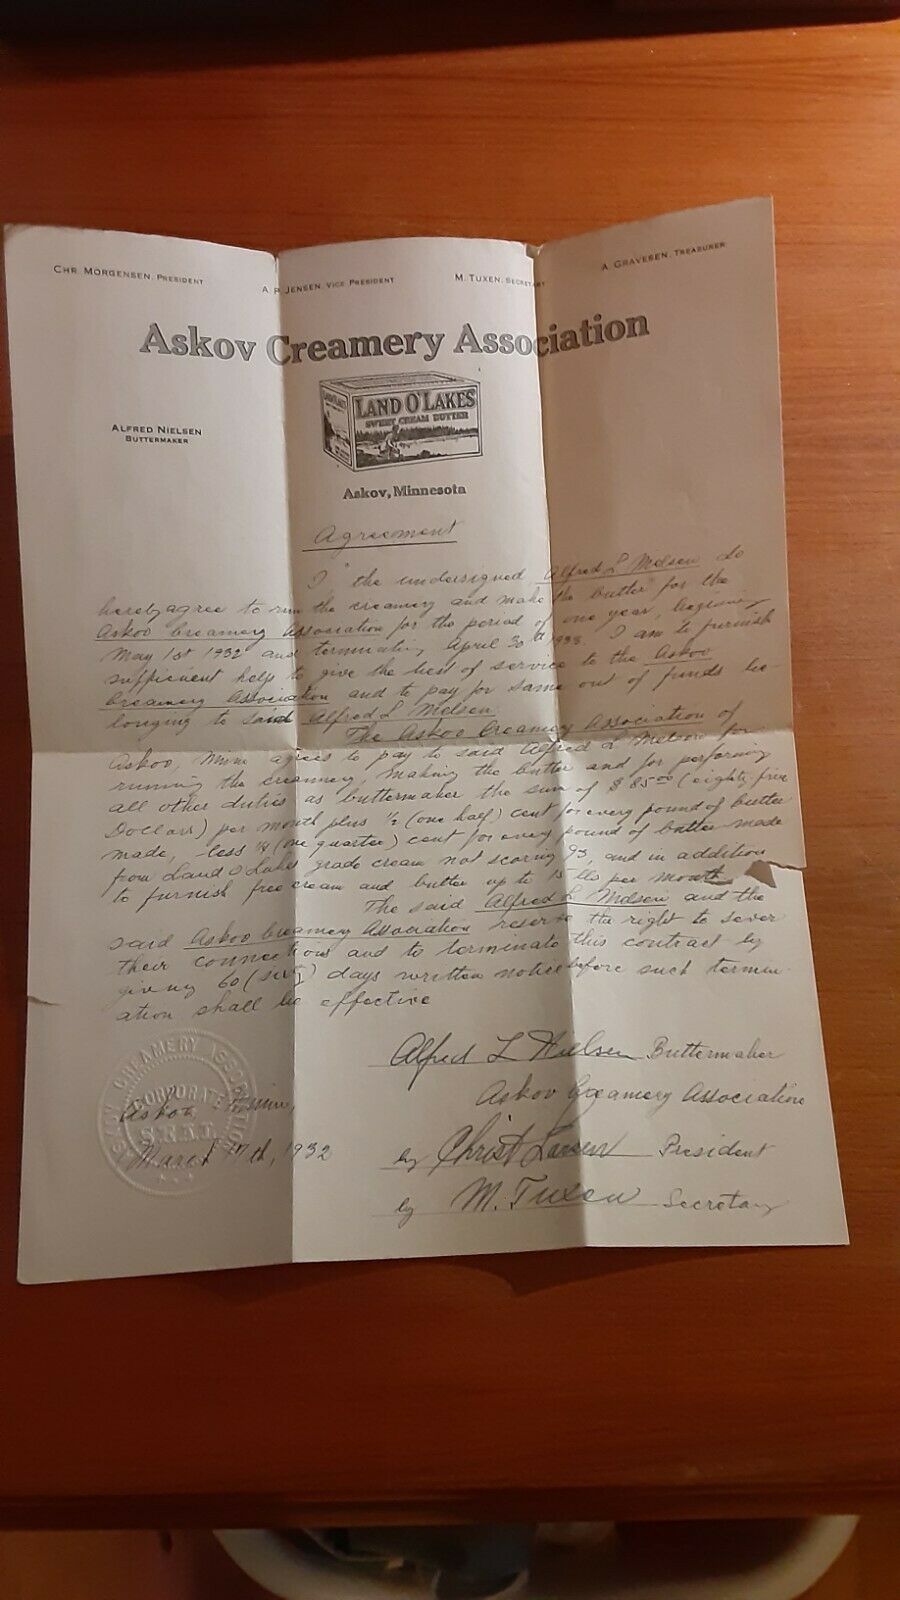 CHR. MORGENSEN, PRESIDENT
A. P. JENSEN, VICE PRESIDENT
M. TUXEN, SECRETARY
A. GRAVESEN, TREASURER
Askov Creamery Association
ALFRED NIELSEN
BUTTERMAKER
LAND O'LAKES
SWEET CREAM BUTTER
Askov, Minnesota
Agreement
I the undersigned Alfred L Nielsen do
hereby agree to run the creamery and make the butter for the
Askov Creamery Association for the period of one year, begining
May 1st 1932 and terminating April 30th 1933. I am to furnish
sufficient help to give the best of service to the Askov
Creamery Association and to pay for same out of funds be-
longing to said Alfred L Nielsen.
The Askov Creamery Association of
Askov, Minn agrees to pay to said Alfred L Nielsen for
running the creamery, making the butter and for performing
all other duties as buttermaker the sum of $85.00 (eighty five
Dollars) per month plus ½ (one half) cent for every pound of butter
made, less ¼ (one quarter) cent for every pound of butter made
from Land O Lakes grade cream not scoring 93, and in addition
to furnish free cream and butter up to 15 lbs per month.
The said Alfred L Nielsen and the
said Askov Creamery Association reserve the right to sever
their connections and to terminate this contract by
giving 60 (sixty) days written notice before such termin-
ation shall be effective
Alfred L Nielsen Buttermaker
Askov Creamery Association
ASKOV CREAMERY ASSOCIATION
CORPORATE
SEAL
Askov Minn,
March 17th, 1932
by Christ Larsen President
by M. Tuxen Secretary